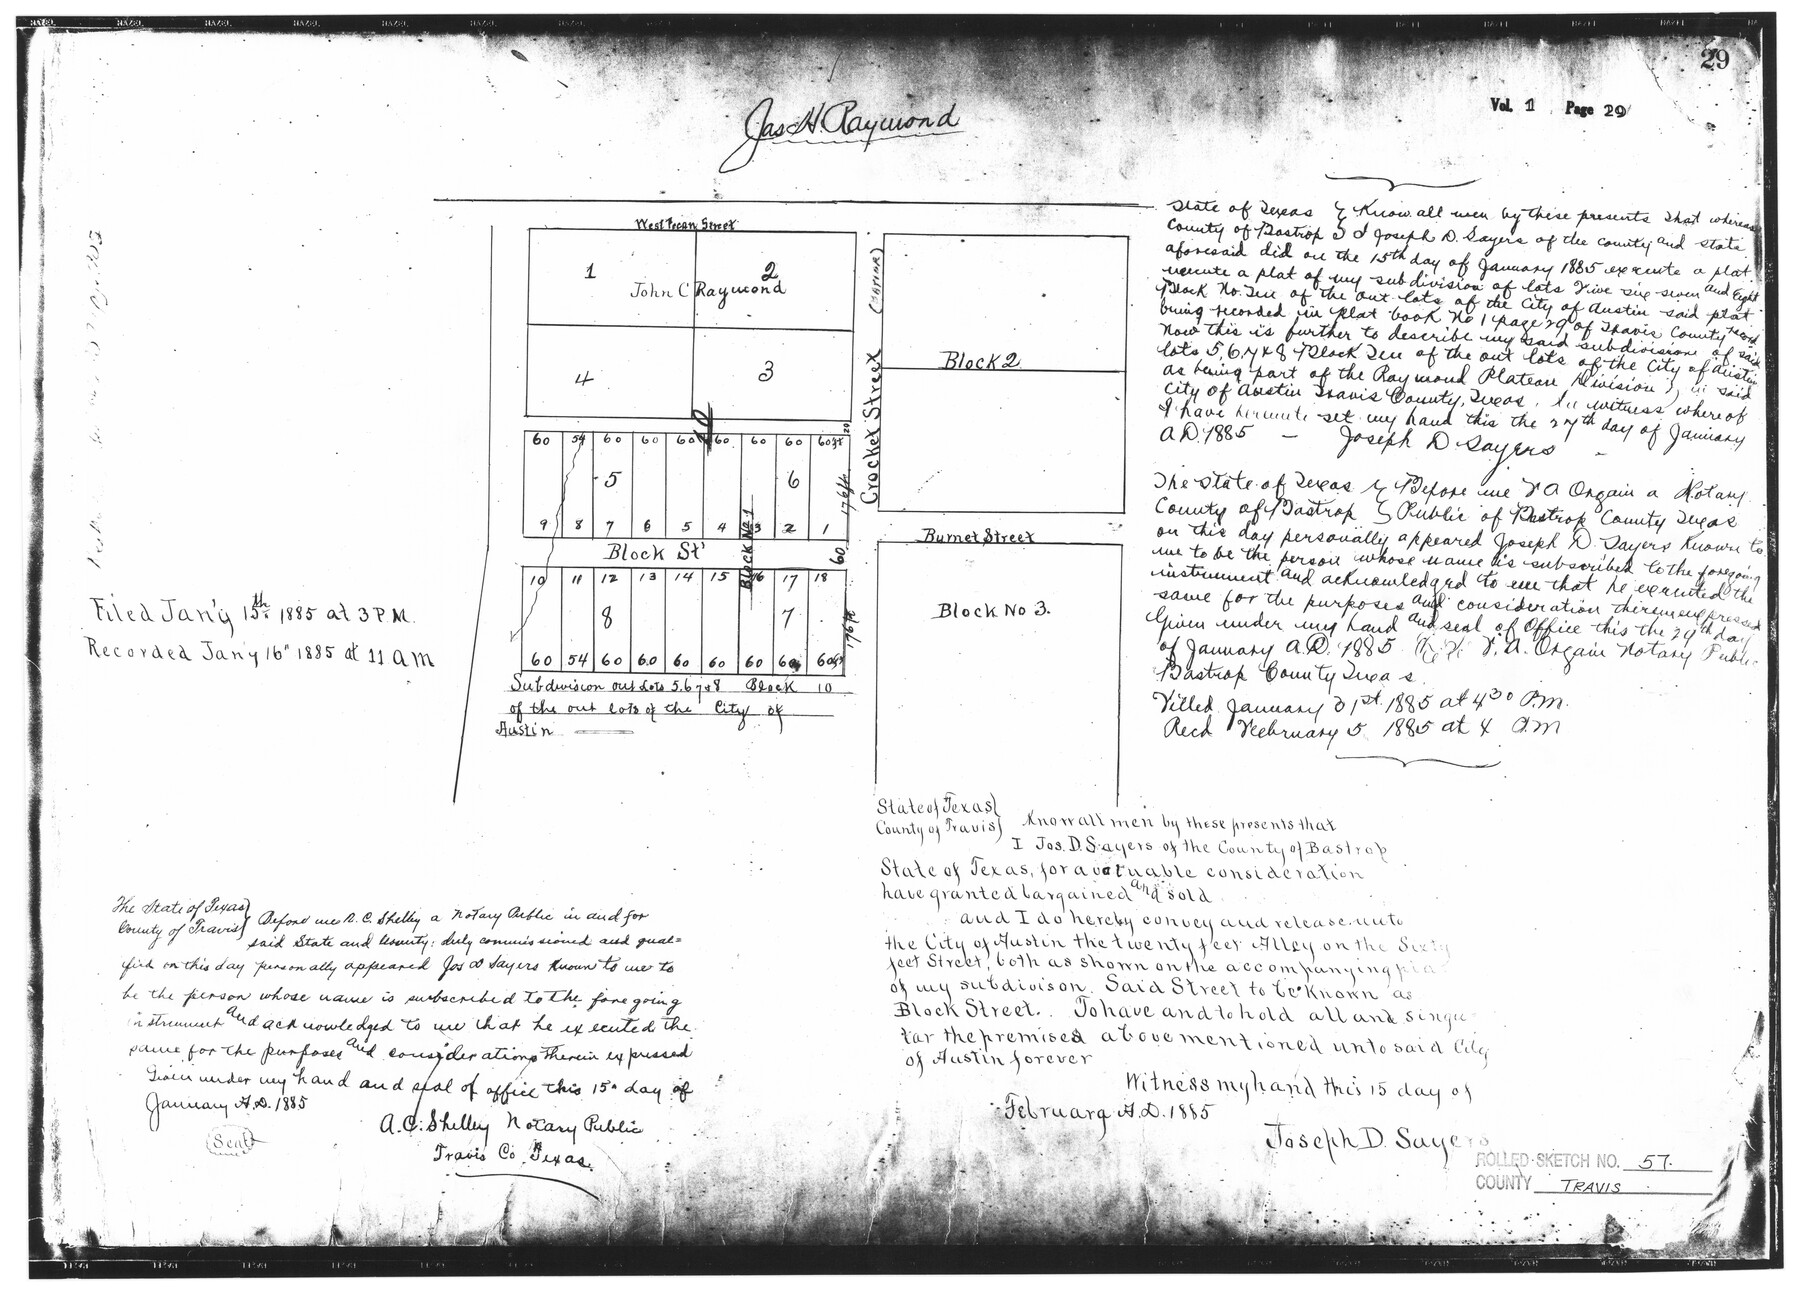 29
Vol. 1 Page 29
Jas H. Raymond
West Pecan Street
1
2
John C Raymond
4
3
10
60 54 60 60 60 60 60 60 60 ft
20
5
6
176 ft
9 8 7 6 5 4 3 2 1
Block St
Block No 1
60
10 11 12 13 14 15 16 17 18
8
7
176 ft
60 54 60 60 60 60 60 60 60 ft
Subdivision out Lots 5.6 7 & 8 Block 10
of the out lots of the City of
Austin
Crocket Street
Block 2
Burnet Street
Block No 3.
Filed Jan'y 15th 1885 at 3 P.M.
Recorded Jany 16" 1885 at 11 A M
State of Texas } Know all men by these presents that whereas
County of Bastrop } I Joseph D. Sayers of the county and state
aforesaid did on the 15th day of January 1885 execute a plat
execute a plat of my subdivision of lots Five six seven and Eight
Block No. Ten of the out lots of the City of Austin said plat
being recorded in Plat book No 1 page 29 of Travis County record
Now this is further to describe my said subdivision of said
lots 5, 6, 7 & 8 Block Ten of the out lots of the City of Austin
as being part of the Raymond Plateau Division, in said
City of Austin Travis County, Texas. In witness whereof
I have hereunto set my hand this the 27th day of January
A.D. 1885 — Joseph D Sayers
The State of Texas } Before me F A Orgain a Notary
County of Bastrop } Public of Bastrop County Texas
on this day personally appeared Joseph D. Sayers Known to
me to be the person whose name is subscribed to the foregoing
instrument and acknowledged to me that he executed the
same for the purposes and consideration therein expressed
Given under my hand and seal of office this the 29th day
of January A.D. 1885 F. A. Orgain Notary Public
Bastrop County Texas.
Filled January 31st. 1885 at 4 30 P.M.
Recd February 5 1885 at 4 P.M
State of Texas }
County of Travis } Know all men by these presents that
I Jos. D. Sayers of the County of Bastrop
State of Texas, for a valuable consideration
have granted bargained and sold
and I do hereby convey and release unto
the City of Austin the twenty feet Alley on the Sixty
feet Street, both as shown on the accompanying
of my subdivison. Said Street to be Known as
Block Street. To have and to hold all and singu
lar the premises above mentioned unto said City
of Austin forever
Witness my hand this 15 day of
February A.D. 1885
Joseph D. Sayers
The State of Texas }
County of Travis } Before me A. C. Shelley a Notary Public in and for
said State and County; duly commissioned and qual=
fied on this day personally appeared Jos D Sayers Known to me to
be the person whose name is subscribed to the foregoing
instrument and acknowledged to me that he executed the
same for the purposes and considerations therein expressed
Given under my hand and seal of office this 15" day of
January A.D. 1885
Seal
A. C. Shelley Notary Public
Travis Co. Texas.
ROLLED SKETCH NO. 57.
COUNTY TRAVIS